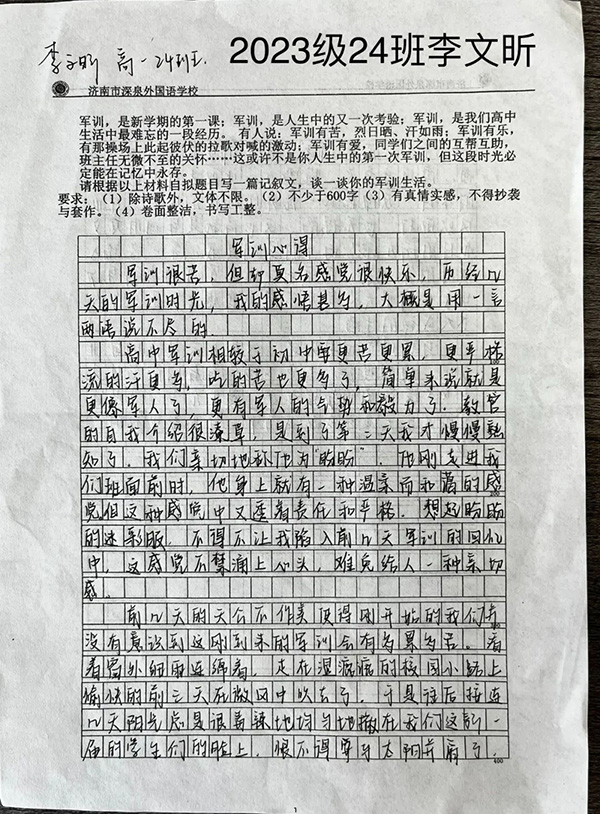 李文昕 高一24班 2023级24班李文昕
济南市深泉外国语学校
军训，是新学期的第一课；军训，是人生中的又一次考验；军训，是我们高中
生活中最难忘的一段经历。 有人说：军训有苦，烈日晒、汗如雨；军训有乐，
有那操场上此起彼伏的拉歌对喊的激动；军训有爱，同学们之间的互帮互助，
班主任无微不至的关怀……这或许不是你人生中的第一次军训，但这段时光必
定能在记忆中永存。
请根据以上材料自拟题目写一篇记叙文，谈一谈你的军训生活。
要求：（1）除诗歌外，文体不限。（2）不少于600字（3）有真情实感，不得抄袭
与套作。（4）卷面整洁，书写工整。
军训心得
军训很苦，但却莫名感觉很快乐，历经几
天的军训时光，我的感悟甚多，大概是用一言
两语说不尽的。
高中军训相较于初中要更苦更累，更严格
100
流的汗更多，吃的苦也更多了，简单来说就是
更像军人了，更有军人的气势和毅力了。教官
的自我介绍很潦草，是到了第二天我才慢慢熟
知了。我们亲切地称他为“盼盼”。他刚走进我
们班面前时，他身上就有一种温柔而和蔼的感
200
觉但这种感觉中又透着责任和严格。想起盼盼
的迷彩服，不得不让我陷入前几天军训的回忆
中，这感觉不禁涌上心头，难免给人一种亲切
感。
前几天的天公不作美使得刚开始的我们并
没有意识到这刚到来的军训会有多累多苦。看
着窗外细雨连绵着，走在湿漉漉的校园小路上
愉快的前三天在微风中吹去了。于是往后接连
几天阳光总是很
地均匀地撒在我们这新一
届的学生们的脸上，恨不得
太阳
了，
400
1